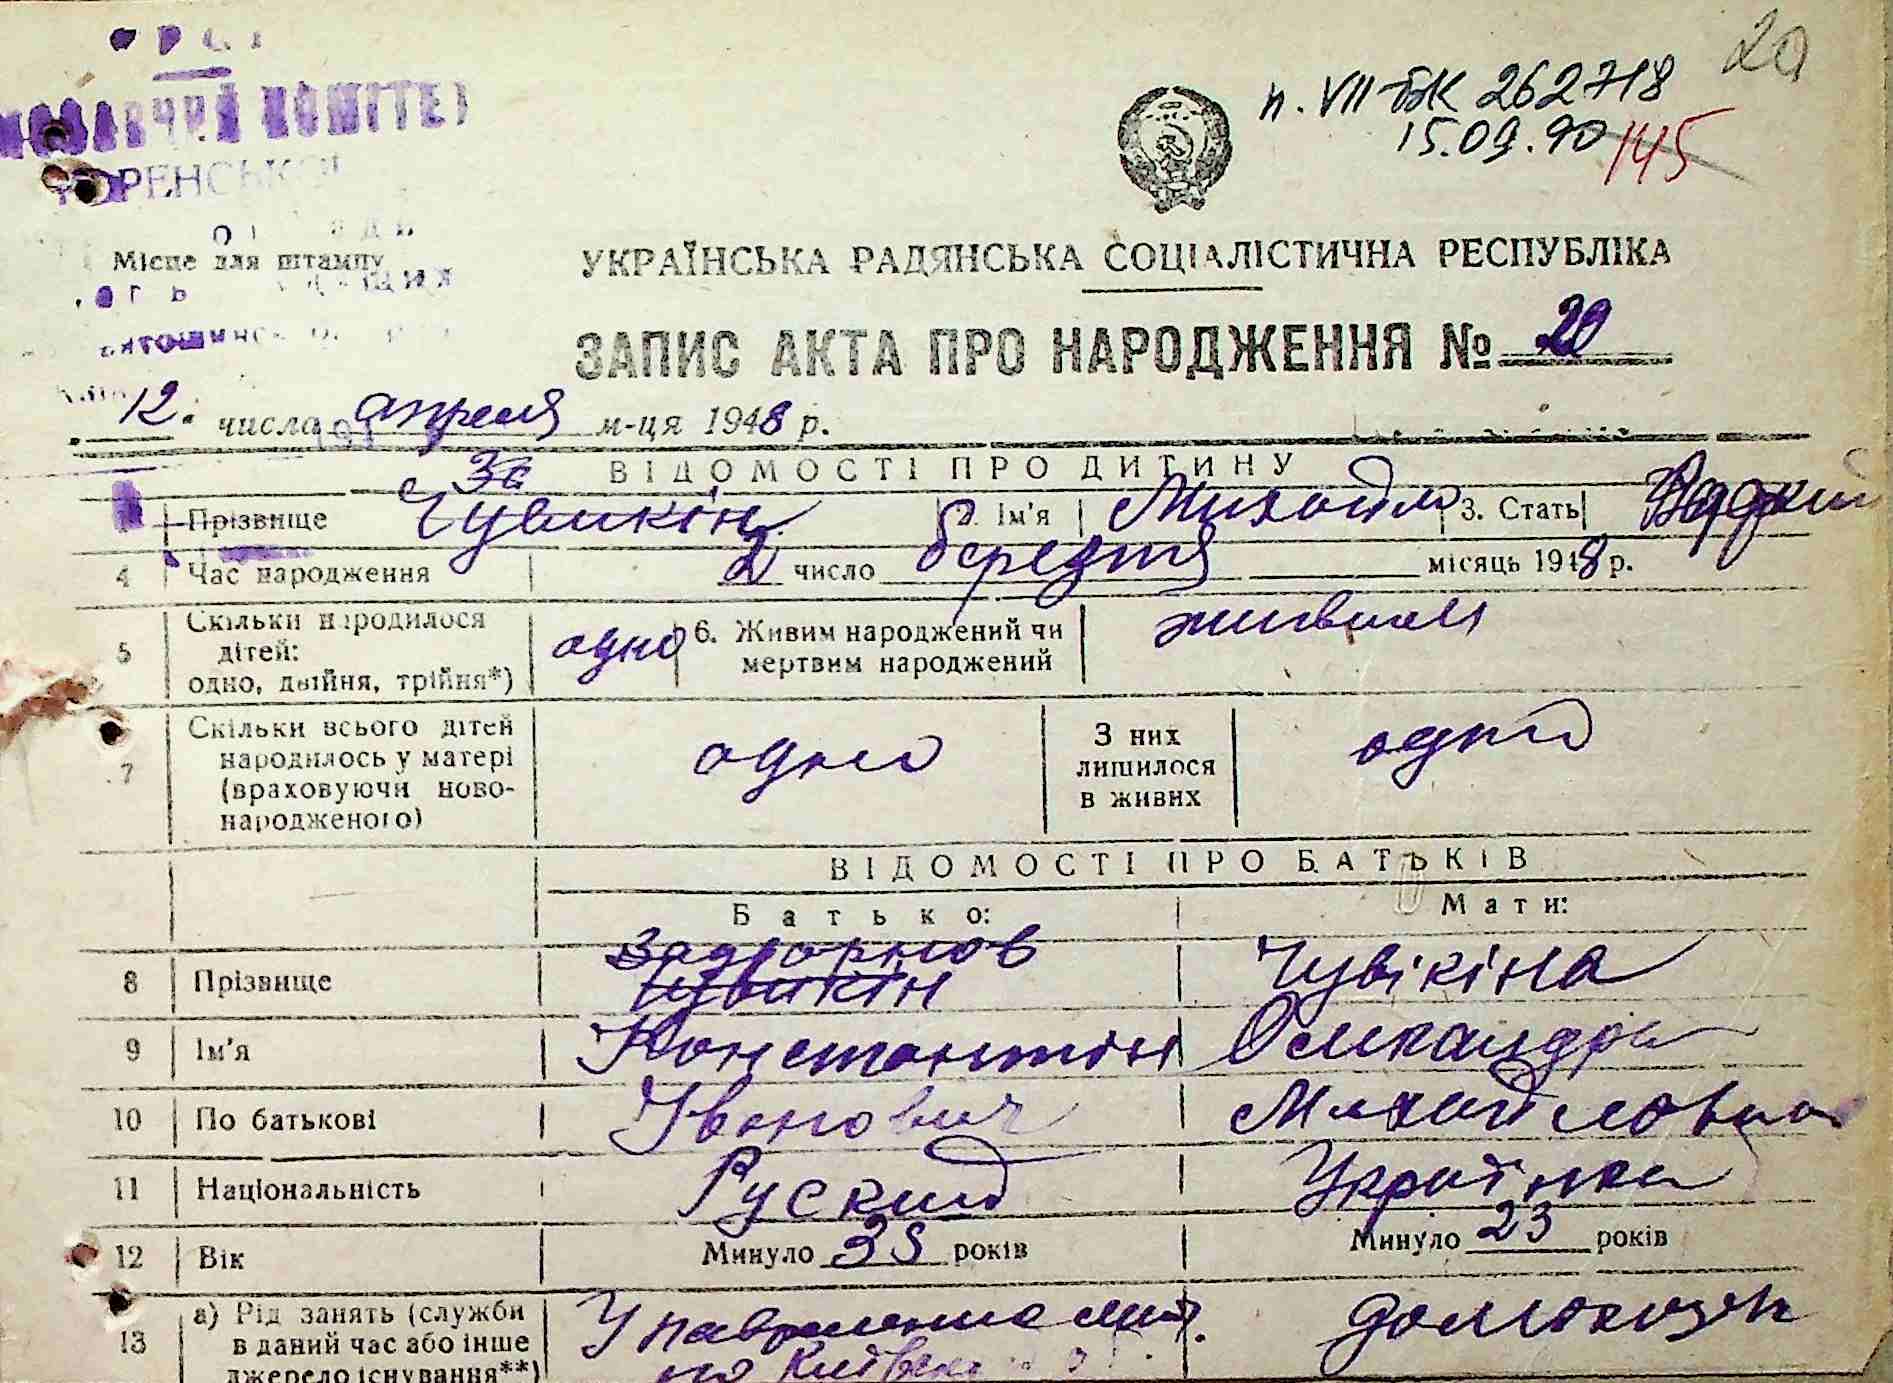 20
п. VII-БК 262718
15.09.90 145
КОМІТЕТ
Місце для штампу
УКРАЇНСЬКА РАДЯНСЬКА СОЦІАЛІСТИЧНА РЕСПУБЛІКА
ЗАПИС АКТА ПРО НАРОДЖЕННЯ № 20
12. числа апреля м-ця 1948 р.
ВІДОМОСТІ ПРО ДИТИНУ
За
Прізвище Чувикін 2. Ім'я Михайло 3. Стать
4 Час народження 2 число березня місяць 1948 р.
5 Скільки народилося дітей: одно, двійня, трійня*) одно 6. Живим народжений чи мертвим народжений живим
7 Скільки всього дітей народилось у матері (враховуючи ново-народженого) одно З них лишилося в живих одно
ВІДОМОСТІ ПРО БАТЬКІВ
Батько: Мати:
Задорнов
8 Прізвище Чувикін Чувікіна
9 Ім'я Константін Олександра
10 По батькові Іванович Михайловна
11 Національність Руский Українка
12 Вік Минуло 38 років Минуло 23 років
13 а) Рід занять (служби в даний час або інше джерело існування**)